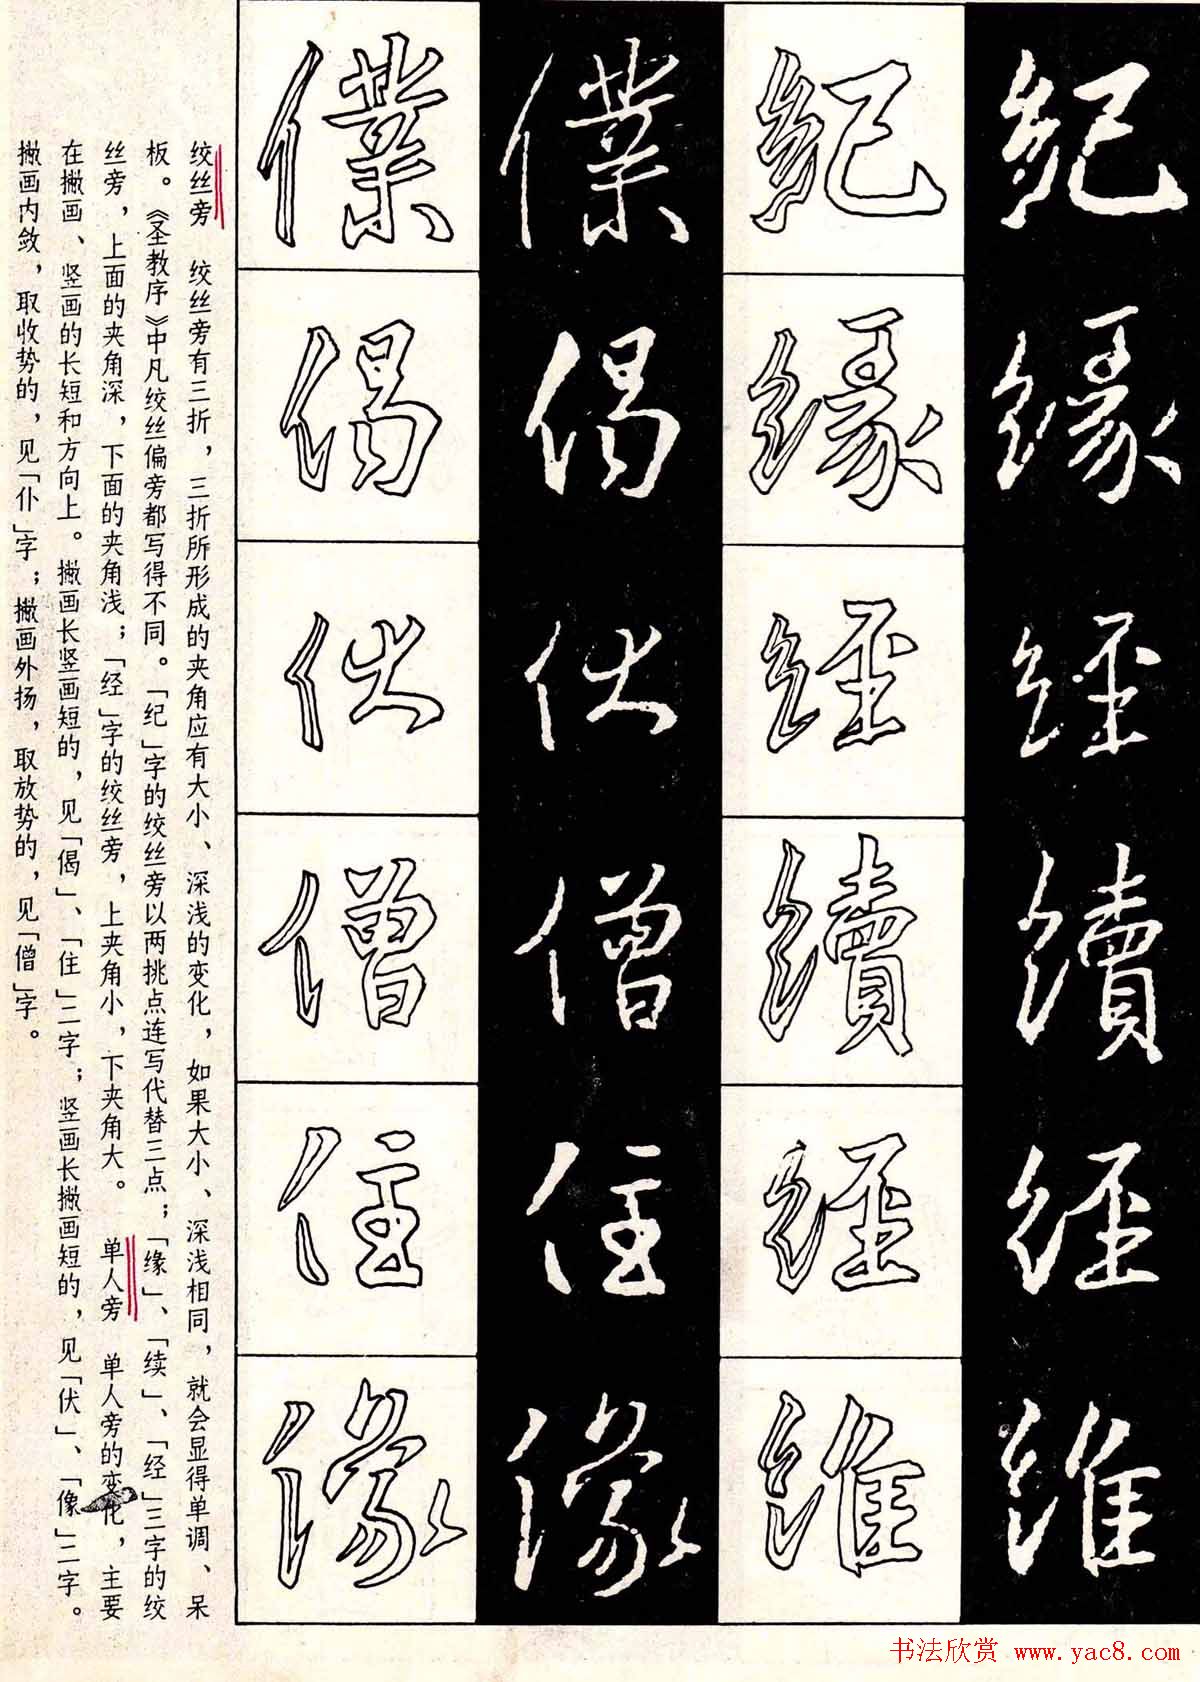 紀緣經續經維
紀緣經續經維
僕偈伏僧住像
僕偈伏僧住像
绞丝旁 绞丝旁有三折，三折所形成的夹角应有大小、深浅的变化，如果大小、深浅相同，就会显得单调、呆
板。《圣教序》中凡绞丝偏旁都写得不同。「纪」字的绞丝旁以两挑点连写代替三点；「缘」、「续」、「经」三字的绞
丝旁，上面的夹角深，下面的夹角浅；「经」字的绞丝旁，上夹角小，下夹角大。 单人旁 单人旁的变化，主要
在撇画、竖画的长短和方向上。撇画长竖画短的，见「偈」、「住」二字；竖画长撇画短的，见「伏」、「像」二字。
撇画内敛，取收势的，见「仆」字；撇画外扬，取放势的，见「僧」字。
书法欣赏 www.yac8.com